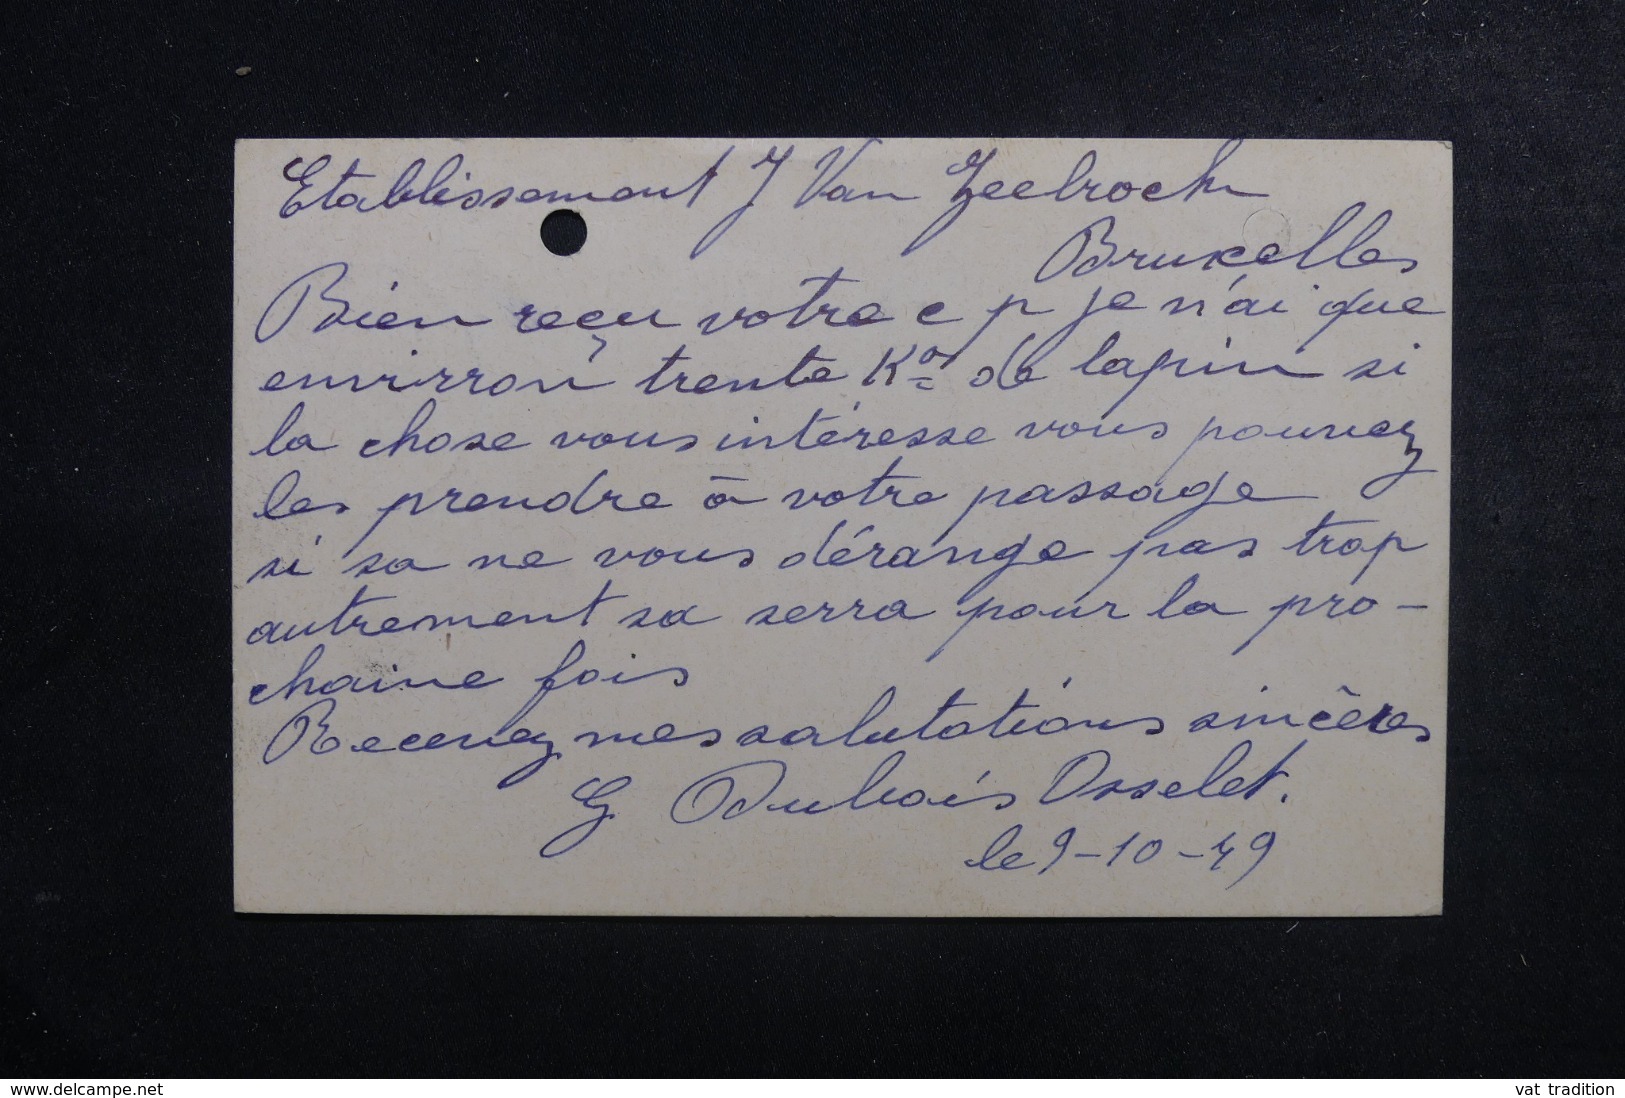 Etablissement J Van Zeebroeck
Bruxelles
Bien reçu votre c p je n'ai que
envirron trente Kos de lapin si
la chose vous intéresse vous pouvez
les prendre à votre passage
si sa ne vous dérange pas trop
autrement sa serra pour la pro-
chaine fois
Recevez mes salutations sincères
G Dubois Osselet.
le 9-10-49
www.delcampe.net
vat tradition